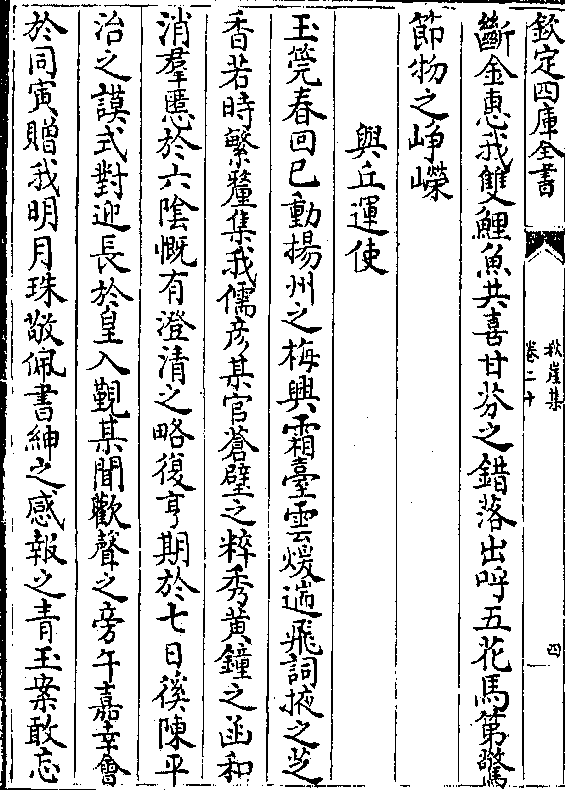 欽定四庫全書
秋崖集
卷二十
四
斷金惠我雙鯉魚共喜甘芬之錯落出呼五花馬第驚
節物之崢嶸
與丘運使
玉筦春回已動揚州之梅興霜臺雲煖遄飛詞掖之芝
香若時繁釐集我儒彦某官蒼璧之粹秀黄鐘之函和
消羣慝於六陰慨有澄清之略復亨期於七日徯陳平
治之謨式對迎長於皇入覲某聞歡聲之旁午嘉幸會
於同寅贈我明月珠敬佩書紳之感報之青玉案敢忘